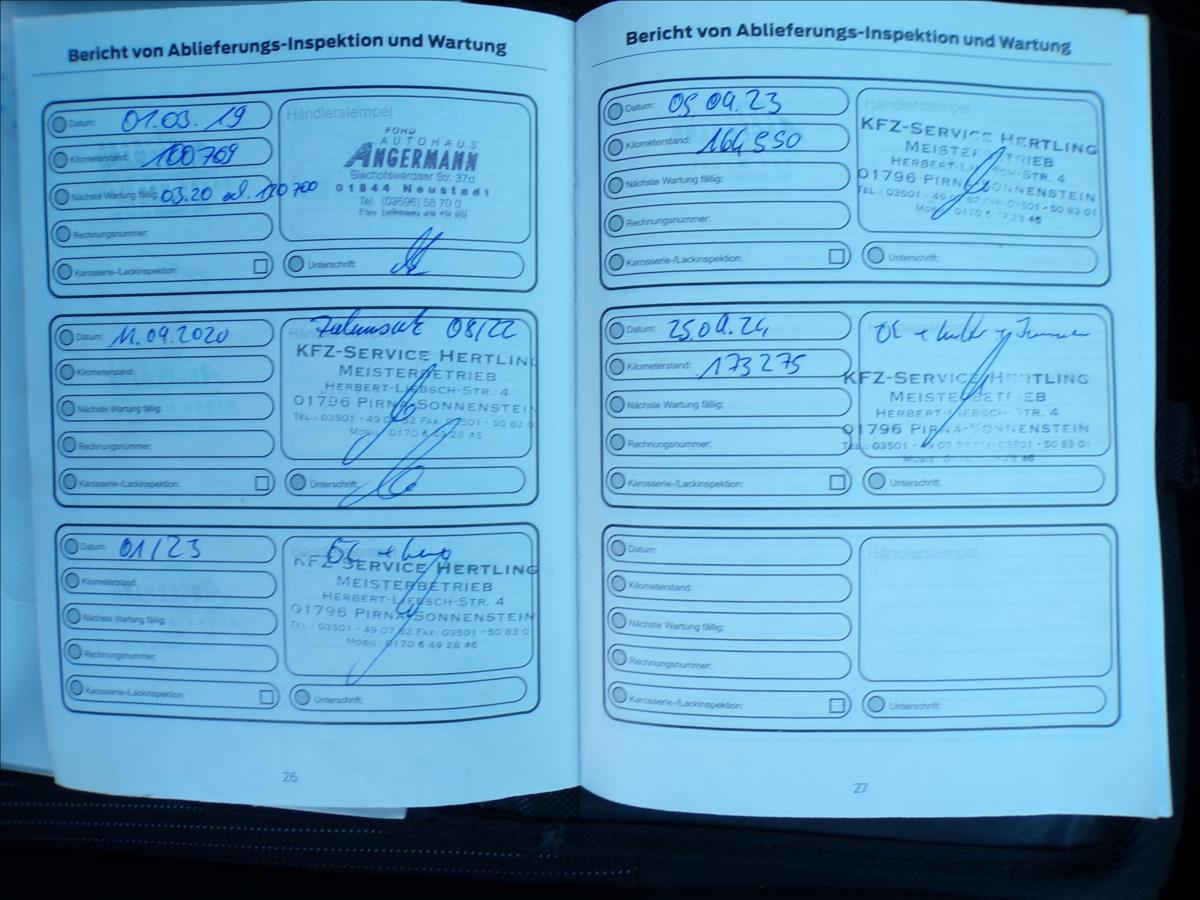 Bericht von Ablieferungs-Inspektion und Wartung
Datum: 01.03.19
Kilometerstand: 100769
Nächste Wartung fällig: 03.20 od. 120700
Rechnungsnummer:
Karosserie-/Lackinspektion:
Händlerstempel
FORD
AUTOHAUS
ANGERMANN
Bischofswerdaer Str. 37d
01844 Neustadt
Tel. (03596) 58 70 0
Unterschrift:
Datum: 11.09.2020
Kilometerstand:
Nächste Wartung fällig:
Rechnungsnummer:
Karosserie-/Lackinspektion:
08/22
KFZ-SERVICE HERTLING
MEISTERBETRIEB
HERBERT-LIEBSCH-STR. 4
01796 PIRNA-SONNENSTEIN
TEL.: 03501 - 49 07 82 FAX: 03501 - 50 83 0
MOBIL: 0170 6 49 28 46
Unterschrift:
Datum: 01/23
Kilometerstand:
Nächste Wartung fällig:
Rechnungsnummer:
Karosserie-/Lackinspektion:
KFZ-SERVICE HERTLING
MEISTERBETRIEB
HERBERT-LIEBSCH-STR. 4
01796 PIRNA-SONNENSTEIN
TEL.: 03501 - 49 07 82 FAX: 03501 - 50 83 0
MOBIL: 0170 6 49 28 46
Unterschrift:
26
Bericht von Ablieferungs-Inspektion und Wartung
Datum: 05.09.23
Kilometerstand: 164550
Nächste Wartung fällig:
Rechnungsnummer:
Karosserie-/Lackinspektion:
Händlerstempel
KFZ-SERVICE HERTLING
MEISTERBETRIEB
HERBERT-LIEBSCH-STR. 4
01796 PIRNA-SONNENSTEIN
TEL.: 03501 - 49 07 82 FAX: 03501 - 50 83 01
MOBIL: 0170 6 49 28 46
Unterschrift:
Datum: 25.09.24
Kilometerstand: 173275
Nächste Wartung fällig:
Rechnungsnummer:
Karosserie-/Lackinspektion:
KFZ-SERVICE HERTLING
MEISTERBETRIEB
HERBERT-LIEBSCH-STR. 4
01796 PIRNA-SONNENSTEIN
TEL.: 03501 - 49 07 82 FAX: 03501 - 50 83 01
Unterschrift:
Datum:
Kilometerstand:
Nächste Wartung fällig:
Rechnungsnummer:
Karosserie-/Lackinspektion:
Händlerstempel
Unterschrift:
27